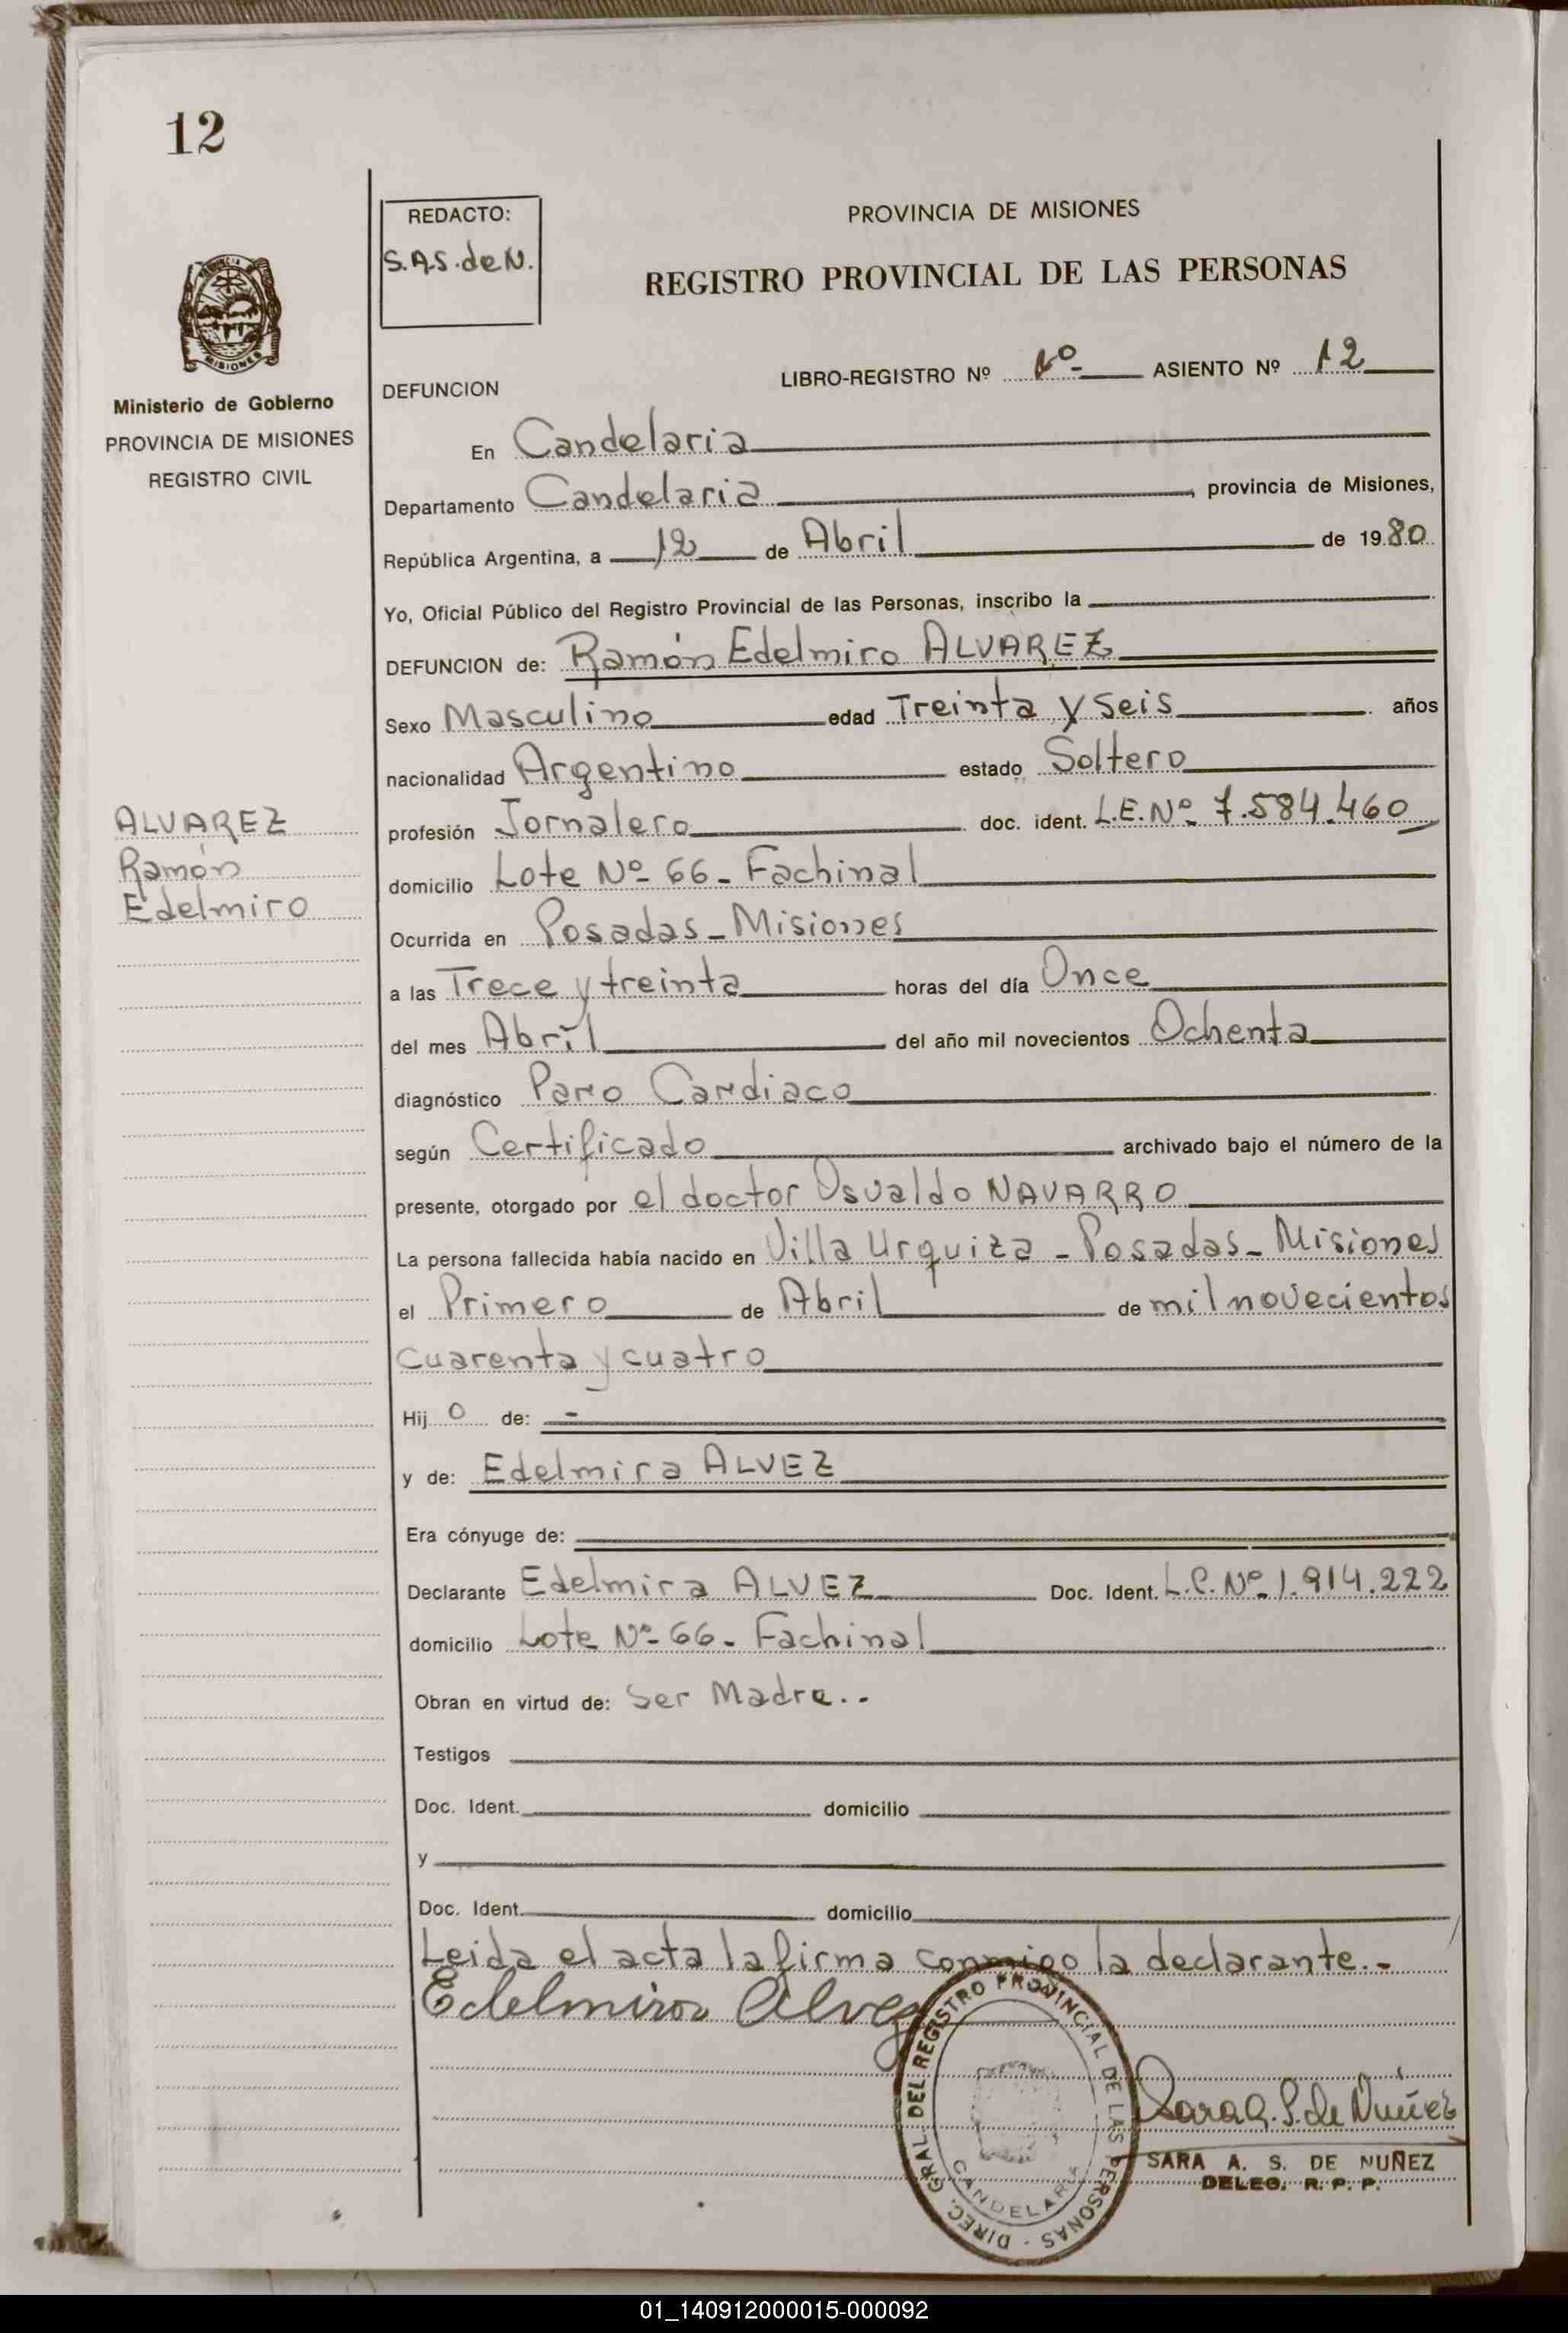 12
REDACTO:
S.A.S. de N.
PROVINCIA DE MISIONES
REGISTRO PROVINCIAL DE LAS PERSONAS
MISIONES
Ministerio de Gobierno
PROVINCIA DE MISIONES
REGISTRO CIVIL
DEFUNCION
LIBRO-REGISTRO Nº 1º- ASIENTO Nº 12
En Candelaria
Departamento Candelaria, provincia de Misiones,
República Argentina, a 12 de Abril de 1980
Yo, Oficial Público del Registro Provincial de las Personas, inscribo la
DEFUNCION de: Ramón Edelmiro ALVAREZ
Sexo Masculino edad Treinta y Seis años
nacionalidad Argentino estado Soltero
ALVAREZ
Ramón
Edelmiro
profesión Jornalero doc. ident. L.E. Nº 7.584.460
domicilio Lote Nº 66 - Fachinal
Ocurrida en Posadas - Misiones
a las Trece y treinta horas del día Once
del mes Abril del año mil novecientos Ochenta
diagnóstico Paro Cardiaco
según Certificado archivado bajo el número de la
presente, otorgado por el doctor Osvaldo NAVARRO
La persona fallecida había nacido en Villa Urquiza - Posadas - Misiones
el Primero de Abril de mil novecientos
cuarenta y cuatro
Hij o de: -
y de: Edelmira ALVEZ
Era cónyuge de:
Declarante Edelmira ALVEZ Doc. Ident. L.C. Nº 1.914.222
domicilio Lote Nº 66 - Fachinal
Obran en virtud de: Ser Madre..
Testigos
Doc. Ident. domicilio
y
Doc. Ident. domicilio
Leida el acta la firma conmigo la declarante.-
Edelmira Alvez
DIREC. GRAL. DEL REGISTRO PROVINCIAL DE LAS PERSONAS -
CANDELARIA
Sara A. S. de Nuñez
SARA A. S. DE NUÑEZ
DELEG. R. P. P.
01_140912000015-000092